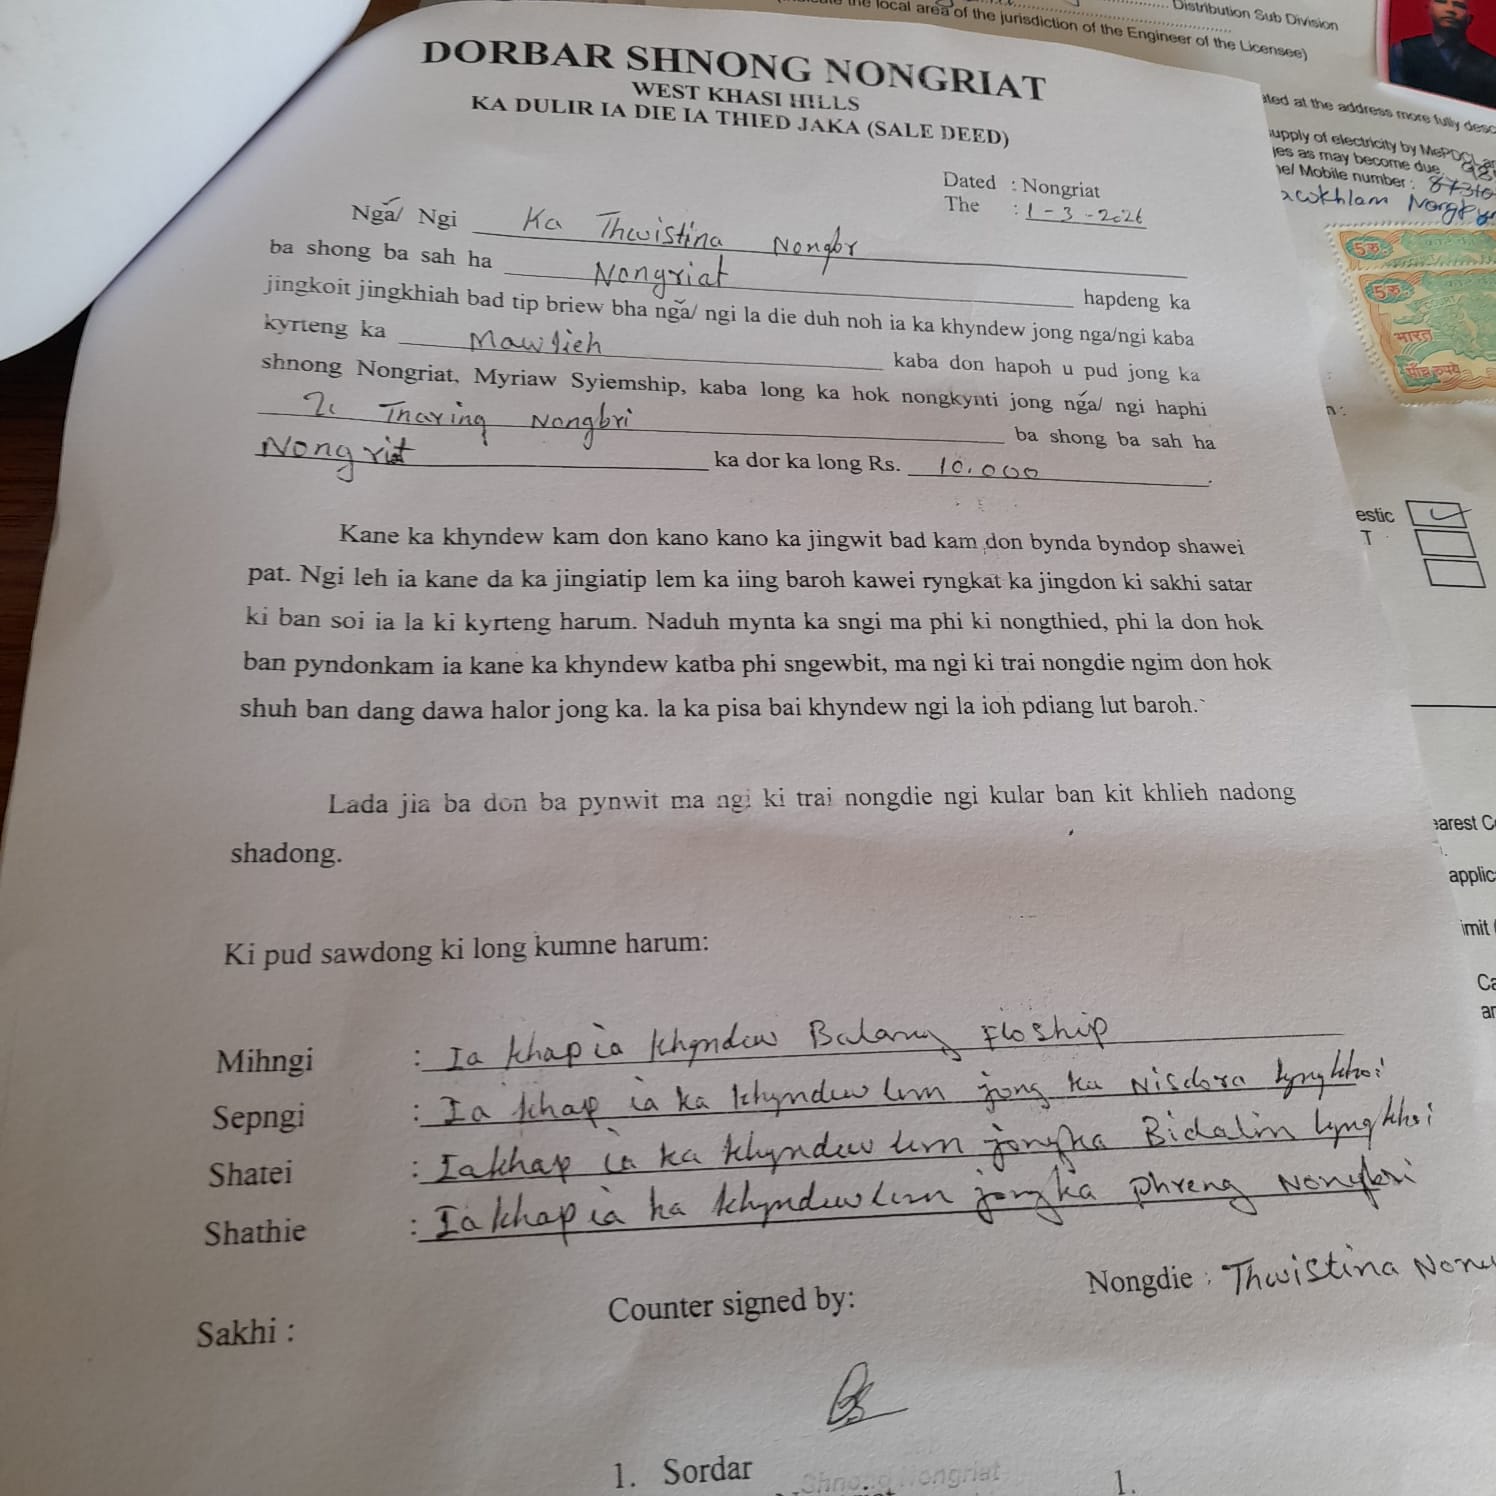 Distribution Sub Division
the local area of the jurisdiction of the Engineer of the Licensee)
DORBAR SHNONG NONGRIAT
WEST KHASI HILLS
KA DULIR IA DIE IA THIED JAKA (SALE DEED)
Dated : Nongriat
The : 1-3-2026
Ngǎ/ Ngi Ka Thwistina Nongbr
ba shong ba sah ha Nongriat hapdeng ka
jingkoit jingkhiah bad tip briew bha ngǎ/ ngi la die duh noh ia ka khyndew jong nga/ngi kaba
kyrteng ka Mawlieh kaba don hapoh u pud jong ka
shnong Nongriat, Myriaw Syiemship, kaba long ka hok nongkynti jong ngǎ/ ngi haphi
U Tharing Nongbri ba shong ba sah ha
Nongrit ka dor ka long Rs. 10.000.
Kane ka khyndew kam don kano kano ka jingwit bad kam don bynda byndop shawei
pat. Ngi leh ia kane da ka jingiatip lem ka iing baroh kawei ryngkat ka jingdon ki sakhi satar
ki ban soi ia la ki kyrteng harum. Naduh mynta ka sngi ma phi ki nongthied, phi la don hok
ban pyndonkam ia kane ka khyndew katba phi sngewbit, ma ngi ki trai nongdie ngim don hok
shuh ban dang dawa halor jong ka. la ka pisa bai khyndew ngi la ioh pdiang lut baroh.
Lada jia ba don ba pynwit ma ngi ki trai nongdie ngi kular ban kit khlieh nadong
shadong.
Ki pud sawdong ki long kumne harum:
Mihngi : Ia khap ia khyndew Balang Floship
Sepngi : Ia khap ia ka khyndew lem jong ka Nisdora lyngkhoi
Shatei : Ia khap ia ka khyndew lem jong ka Bidalin lyngkhoi
Shathie : Ia khap ia ka khyndew lem jong ka Phreng Nongbri
Nongdie : Thwistina
Counter signed by:
Sakhi :
1. Sordar
Shnong Nongriat
1.
ated at the address more fully desc
supply of electricity by MePDCL
es as may become due.
e/ Mobile number :
5रु
5रु
COURT
भारत
पाँच रुपये
estic
T
earest C
applic
imit
Ca
ar